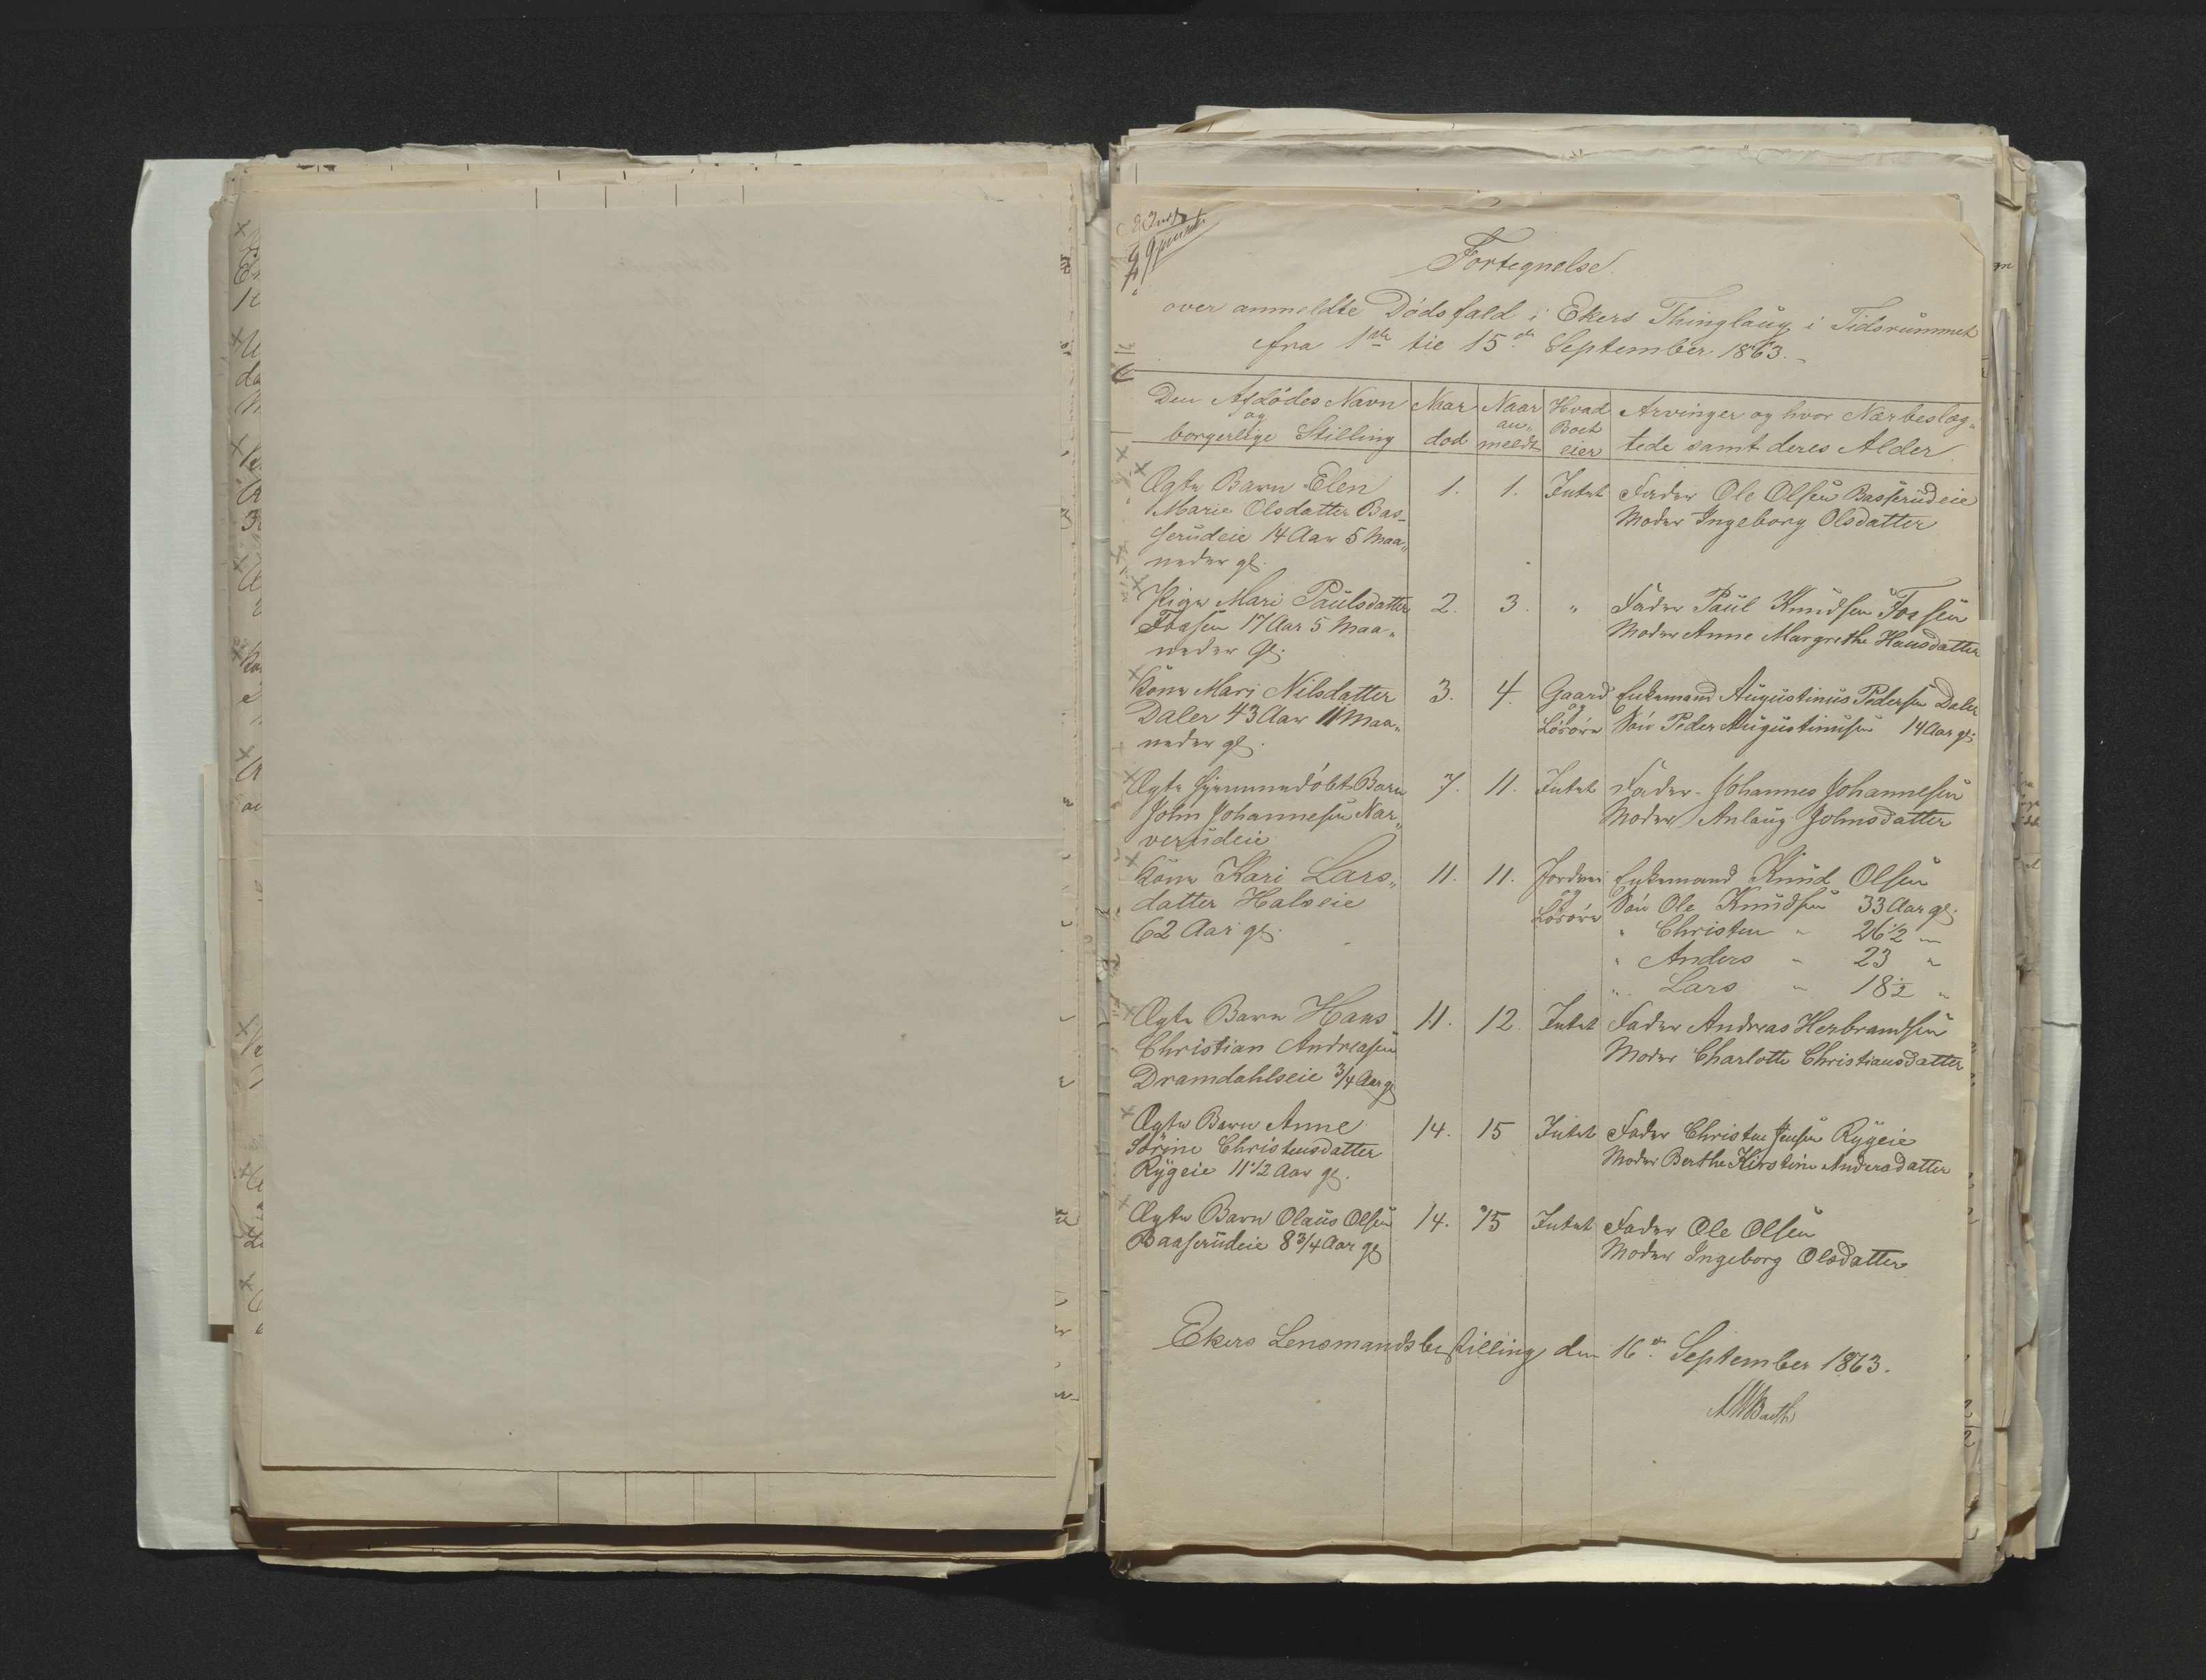 Fortegnelse
over anmeldte Dödsfald i Ekers Thinglaug i Tidsrummet
fra 1ste til 15de September 1863.
Den Afdödes Navn og borgerlige Stilling | Naar död | Naar anmeldt | Hvad Boet eier | Arvinger og hvor Nærbeslægtede samt deres Alder
Ægte Barn Elen | 1. | 1. | Intet | Fader Ole Olsen Basserudeie
Marie Olsdatter Bas- | Moder Ingeborg Olsdatter
serudeie 14 Aar 5 Maa-
neder gl.
Pige Mari Paulsdatter | 2. | 3. | " | Fader Paul Knudsen Fossen
Fossen 17 Aar 5 Maa- | Moder Anne Margrethe Hansdatter
neder gl.
Kone Mari Nilsdatter | 3. | 4. | Gaard | Enkemand Augustinus Pedersen Daler
Daler 43 Aar 11 Maa- | og Lösöre | Sön Peder Augustinusen 14 Aar gl.
neder gl.
Ægte hjemmedöbt Barn | 7. | 11. | Intet | Fader Johannes Johannesen
John Johannesen Nar- | Moder Anlaug Johnsdatter
verudeie
Kone Kari Lars- | 11. | 11. | Jordvei | Enkemand Knud Olsen
datter Halseie | og Lösöre | Sön Ole Knudsen 33 Aar gl.
62 Aar gl. | " Christen " 26 1/2 "
" Anders " 23 "
" Lars " 18 1/2 "
Ægte Barn Hans | 11. | 12. | Intet | Fader Andreas Herbrandsen
Christian Andreasen | Moder Charlotte Christiansdatter
Dramdahlseie 3/4 Aar gl
Ægte Barn Anne | 14. | 15 | Intet | Fader Christen Jensen Rygeie
Sörine Christensdatter | Moder Berthe Kirstine Andersdatter
Rygeie 11 1/2 Aar gl.
Ægte Barn Olaus Olsen | 14. | 15 | Intet | Fader Ole Olsen
Baaserudeie 8 3/4 Aar gl | Moder Ingeborg Olsdatter
Ekers Lensmandsbestilling den 16de September 1863.
Barth